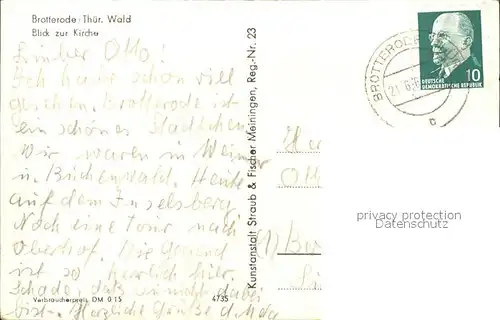 Brotterode Thür. Wald
Blick zur Kirche
Lieber Otto!
Ich habe schon viel
gesehen. Brotterode ist
ein schönes Städtchen
Wir waren in Weimar
u. Buchenwald. Heute
auf dem Inselsberg
Noch eine Tour nach
Oberhof. Die Gegend
ist so herrlich hier.
Schade, daß du nicht dabei
bist. Herzliche Grüße d.
Verbraucherpreis DM 0 15
4735
Kunstanstalt Straub & Fischer Meiningen, Reg.-Nr. 23
BROTTERODE
c
10
DEUTSCHE
DEMOKRATISCHE REPUBLIK
privacy protection
Datenschutz